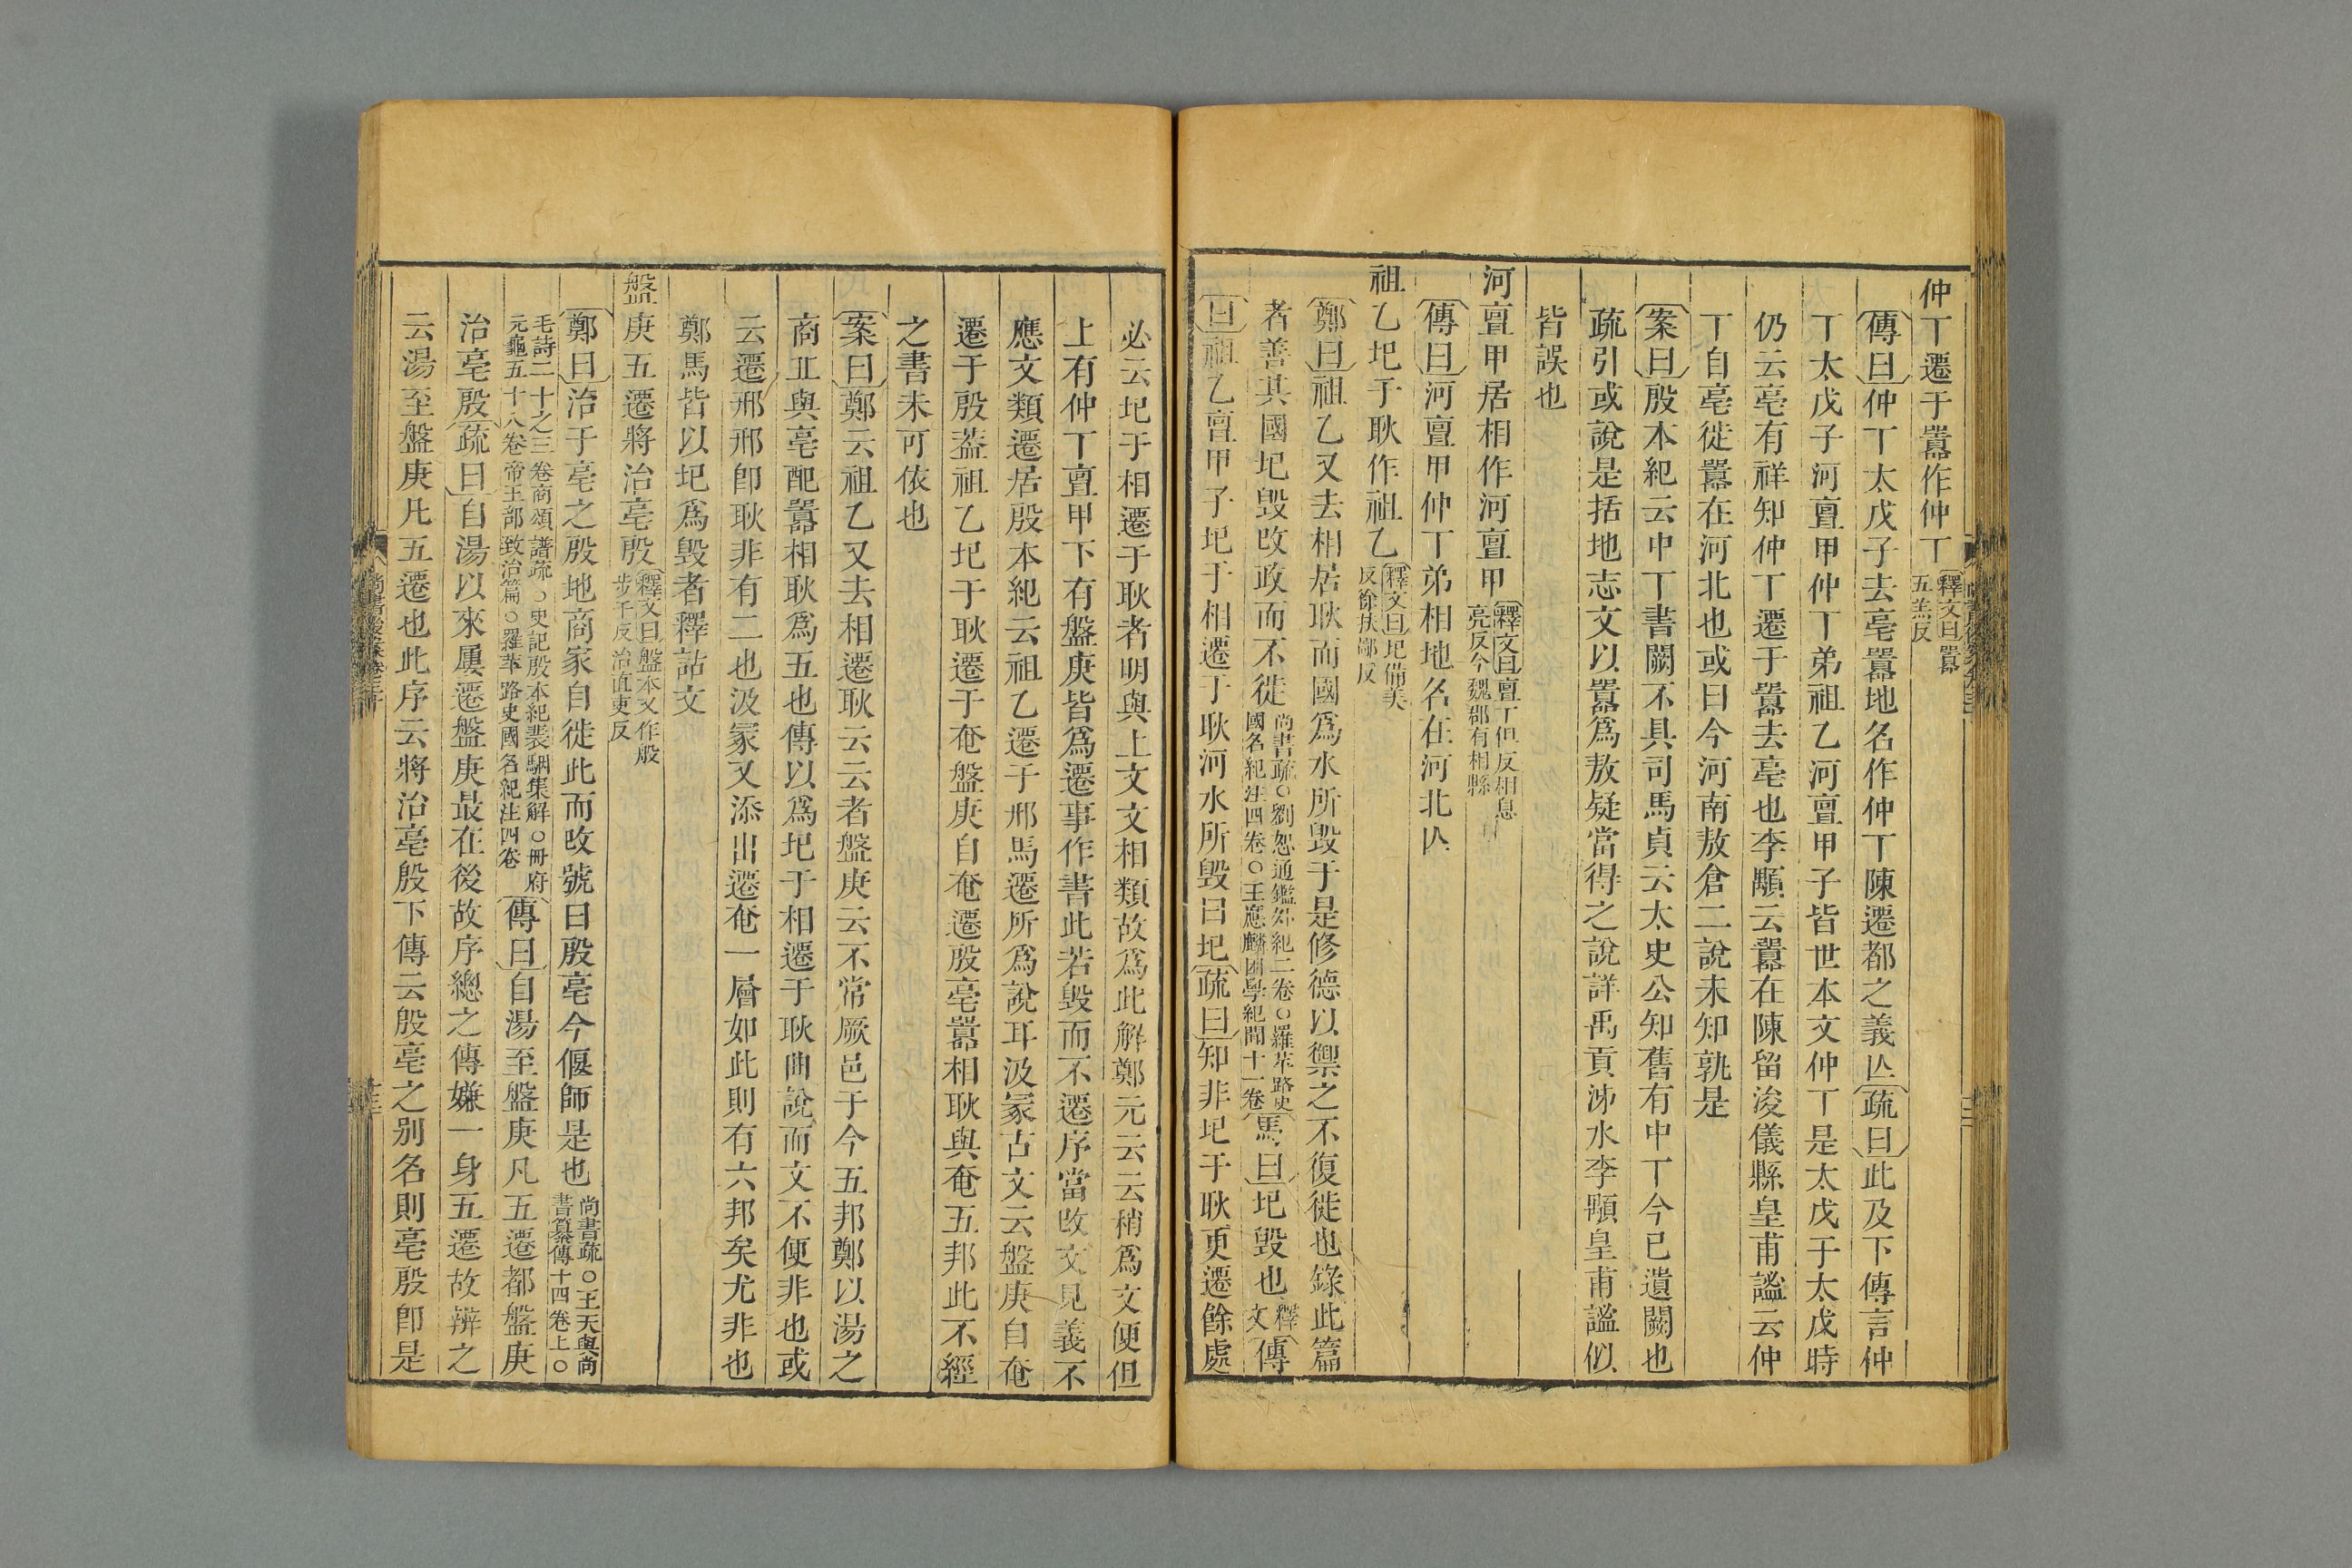 仲丁遷于嚻作仲丁釋文曰嚻五羔反
傳曰仲丁太戊子去亳嚻地名作仲丁陳遷都之義亾疏曰此及下傳言仲
丁太戊子河亶甲仲丁弟祖乙河亶甲子皆世本文仲丁是太戊子太戊時
仍云亳有祥知仲丁遷于嚻去亳也李顒云嚻在陳留浚儀縣皇甫謐云仲
丁自亳徙嚻在河北也或曰今河南敖倉二說未知孰是
案曰殷本紀云中丁書闕不具司馬貞云太史公知舊有中丁今已遺闕也
疏引或說是括地志文以嚻爲敖疑當得之說詳禹貢泲水李顒皇甫謐似
皆誤也
河亶甲居相作河亶甲釋文曰亶丁但反相息亮反今魏郡有相縣
傳曰河亶甲仲丁弟相地名在河北亾
祖乙圮于耿作祖乙釋文曰圮備美反徐扶鄙反
鄭曰祖乙又去相居耿而國爲水所毀于是修德以禦之不復徙也錄此篇
者善其國圮毀改政而不徙尚書疏○劉恕通鑑外紀二卷○羅苹路史國名紀注四卷○王應麟困學紀聞十一卷馬曰圮毀也釋文傳
曰祖乙亶甲子圮于相遷于耿河水所毀曰圮疏曰知非圮于耿更遷餘處
必云圮于相遷于耿者明與上文文相類故爲此解鄭元云云稍爲文便但
上有仲丁亶甲下有盤庚皆爲遷事作書此若毀而不遷序當改文見義不
應文類遷居殷本紀云祖乙遷于邢馬遷所爲說耳汲冢古文云盤庚自奄
遷于殷蓋祖乙圮于耿遷于奄盤庚自奄遷殷亳嚻相耿與奄五邦此不經
之書未可依也
案曰鄭云祖乙又去相遷耿云云者盤庚云不常厥邑于今五邦鄭以湯之
商丘與亳配嚻相耿爲五也傳以爲圮于相遷于耿曲說而文不便非也或
云遷邢邢卽耿非有二也汲冢又添出遷奄一層如此則有六邦矣尤非也
鄭馬皆以圮爲毀者釋詁文
盤庚五遷將治亳殷釋文曰盤本又作般步干反治直吏反
鄭曰治于亳之殷地商家自徙此而改號曰殷亳今偃師是也尚書疏○王天與尚書纂傳十四卷上○
毛詩二十之三卷商頌譜疏○史記殷本紀裴駰集解○冊府元龜五十八卷帝王部致治篇○羅苹路史國名紀注四卷傳曰自湯至盤庚凡五遷都盤庚
治亳殷疏曰自湯以來屢遷盤庚最在後故序總之傳嫌一身五遷故辨之
云湯至盤庚凡五遷也此序云將治亳殷下傳云殷亳之别名則亳殷卽是